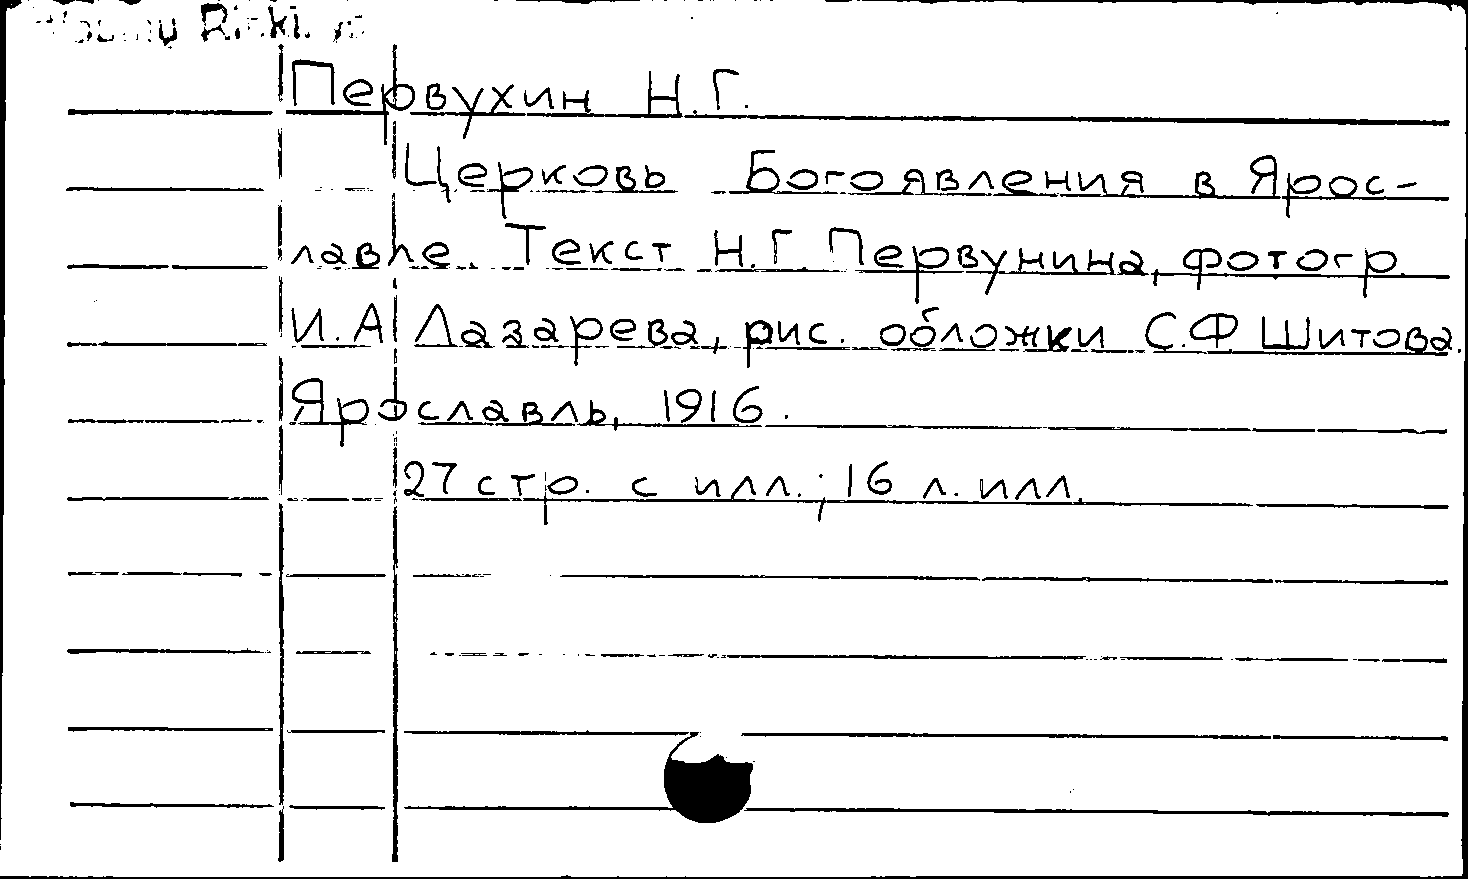 Первухин Н.Г.
Церковь Богоявления в Ярос-
лавле. Текст Н.Г. Первунина, фотогр.
И.А. Лазарева, рис. обложки С.Ф. Шитова.
Ярославль, 1916.
27 стр. с илл.; 16 л. илл.